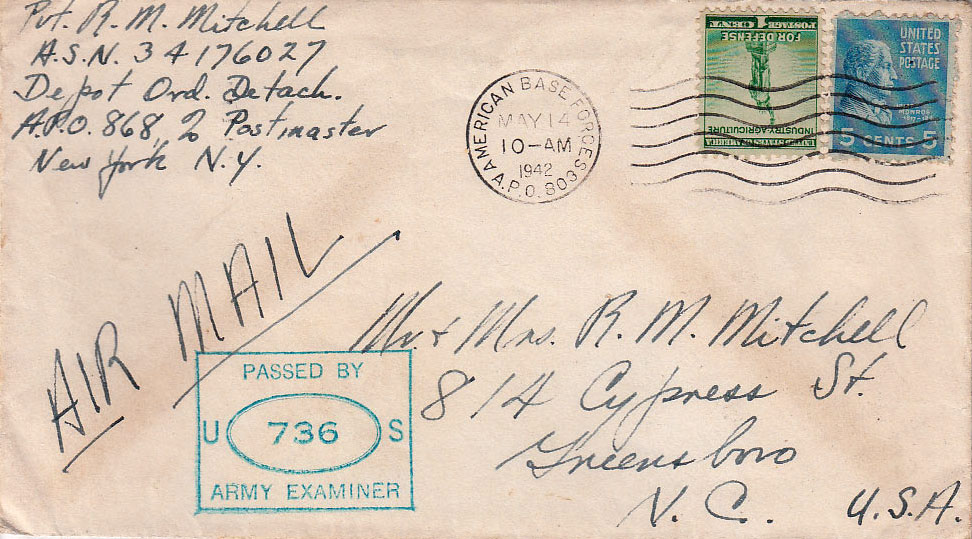 Pvt. R. M. Mitchell
A.S.N. 34176027
Depot Ord. Detach.
A.P.O. 868, % Postmaster
New York N.Y.
AMERICAN BASE FORCES
MAY 14
10-AM
1942
A.P.O. 803
UNITED STATES OF AMERICA
INDUSTRY AGRICULTURE
FOR DEFENSE
POSTAGE 1 CENT
UNITED
STATES
POSTAGE
MONROE
5 CENTS 5
AIR MAIL
Mr. & Mrs. R. M. Mitchell
814 Cypress St.
Greensboro
N. C. U.S.A.
PASSED BY
U 736 S
ARMY EXAMINER